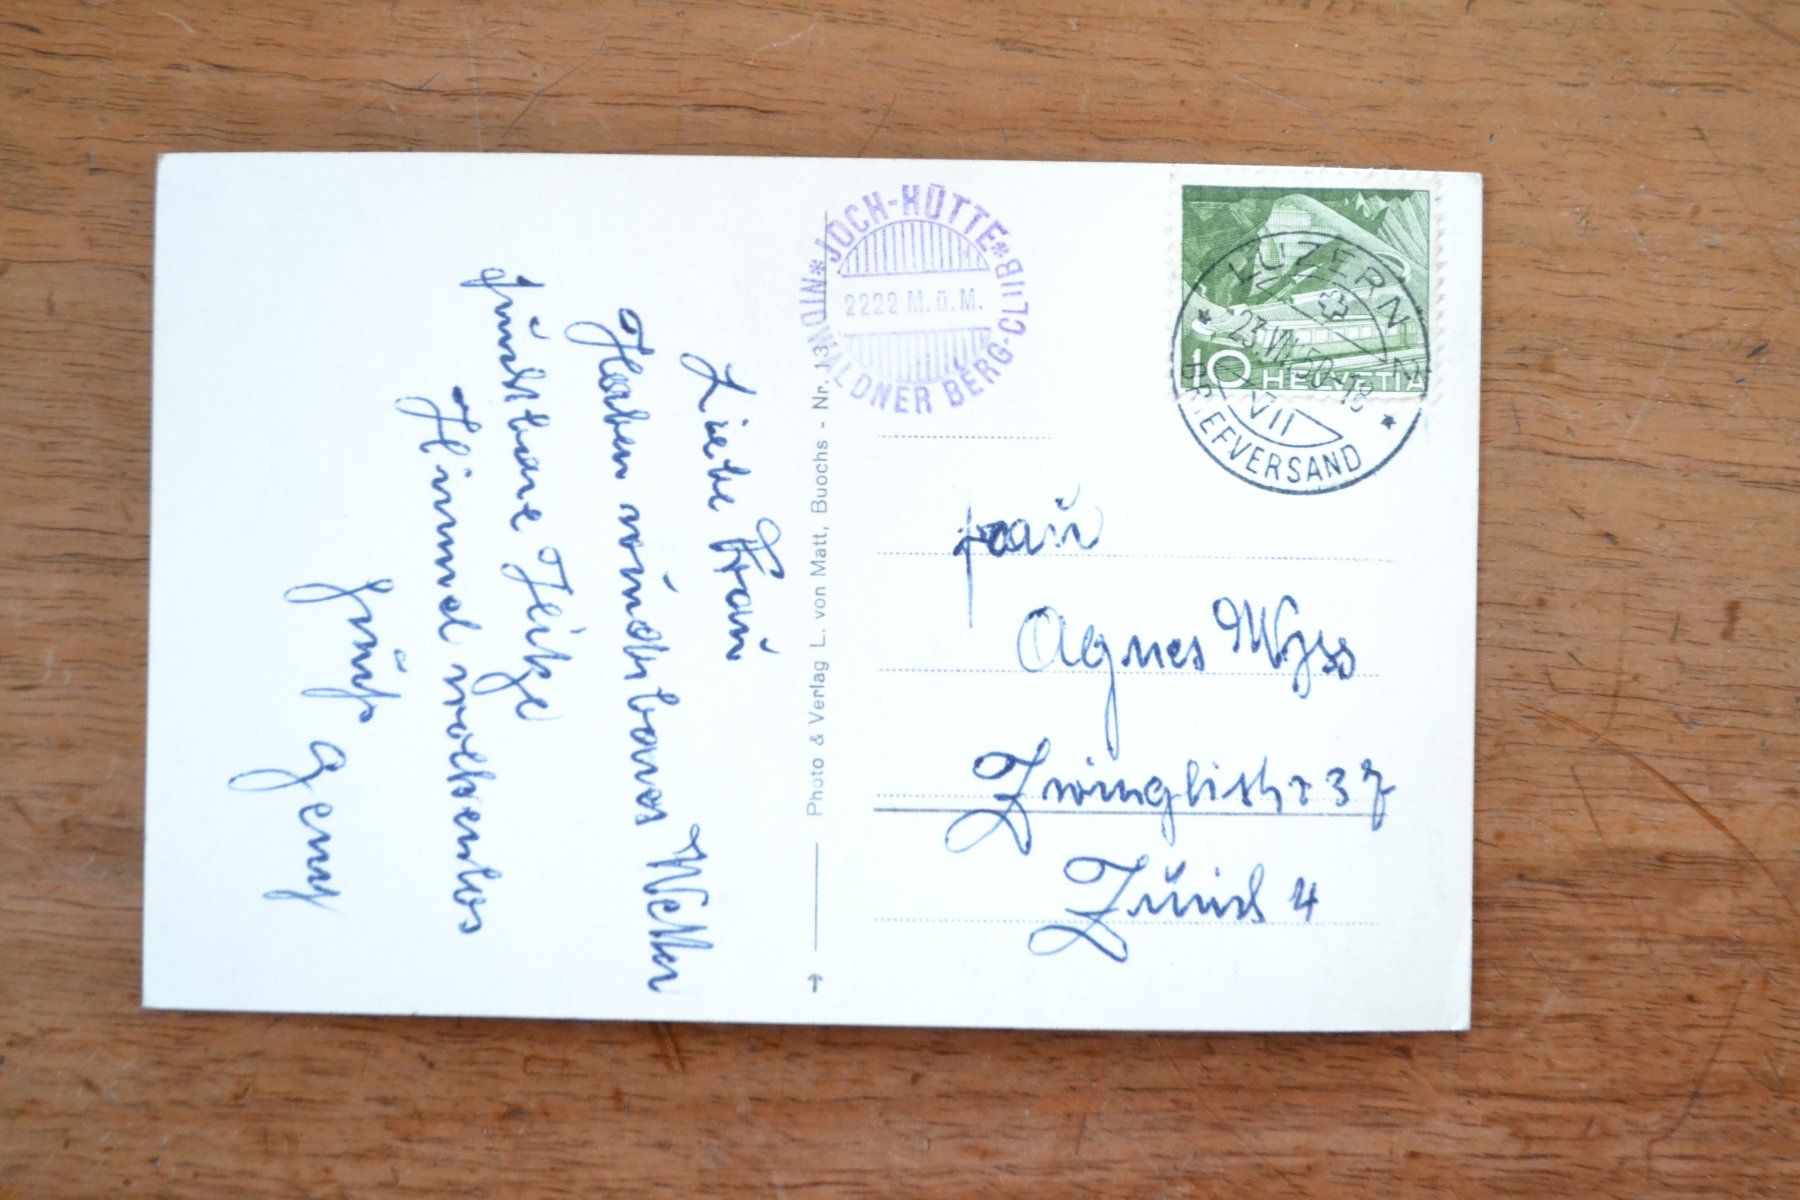 Liebe Frau
Haben wunderbares Wetter
furchtbare Hitze
Himmel wolkenlos
Gruss
JOCH-HÜTTE * NIDWALDNER BERG-CLUB *
2222 M.ü.M.
Photo & Verlag L. von Matt, Buochs - Nr.
10 HELVETIA
LUZERN 2
BRIEFVERSAND
VII
Frau
Agnes Wyss
Zwinglistr 37
Zürich 4